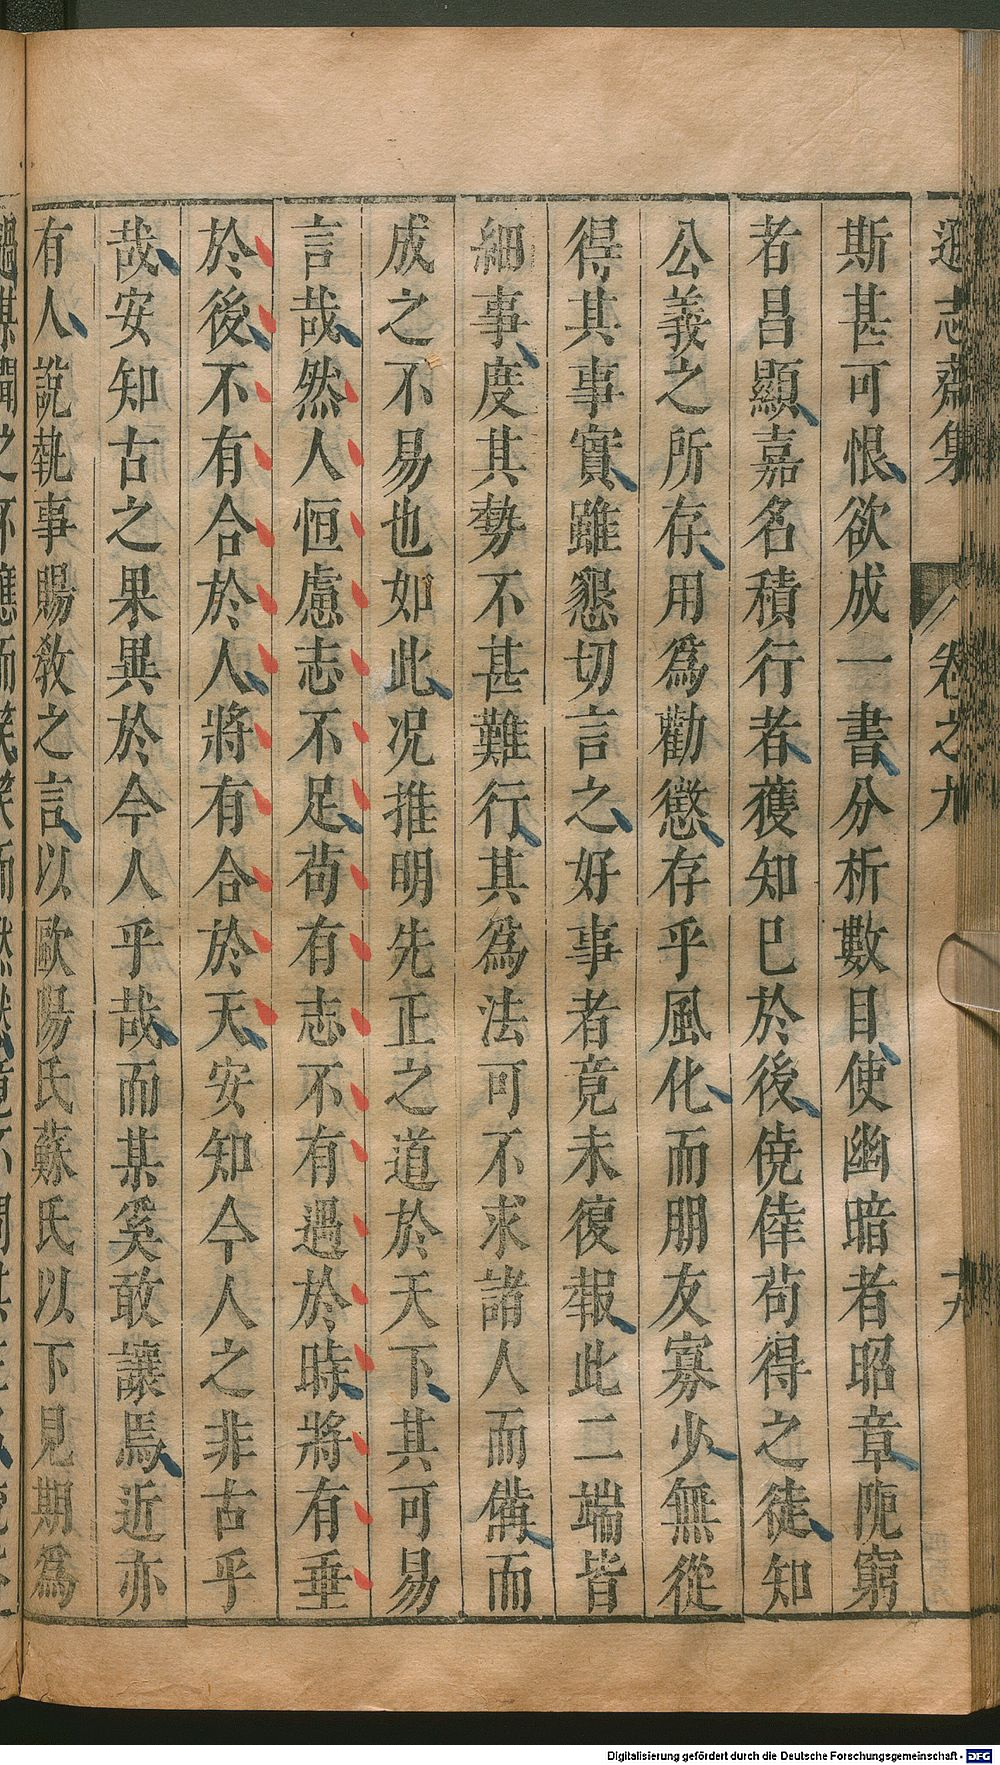 遜志齋集 卷之九 十九
斯甚可恨欲成一書分析數目使幽暗者昭章阨窮
者昌顯嘉名積行者獲知巳於後僥倖苟得之徒知
公義之所存用爲勸懲存乎風化而朋友寡少無從
得其事實雖懇切言之好事者竟未復報此二端皆
細事度其勢不甚難行其爲法可不求諸人而備而
成之不易也如此况推明先正之道於天下其可易
言哉然人恒慮志不足苟有志不有過於時將有垂
於後不有合於人將有合於天安知今人之非古乎
哉安知古之果異於今人乎哉而某奚敢讓焉近亦
有人說執事賜敎之言以歐陽氏蘇氏以下見期爲
Digitalisierung gefördert durch die Deutsche Forschungsgemeinschaft - DFG